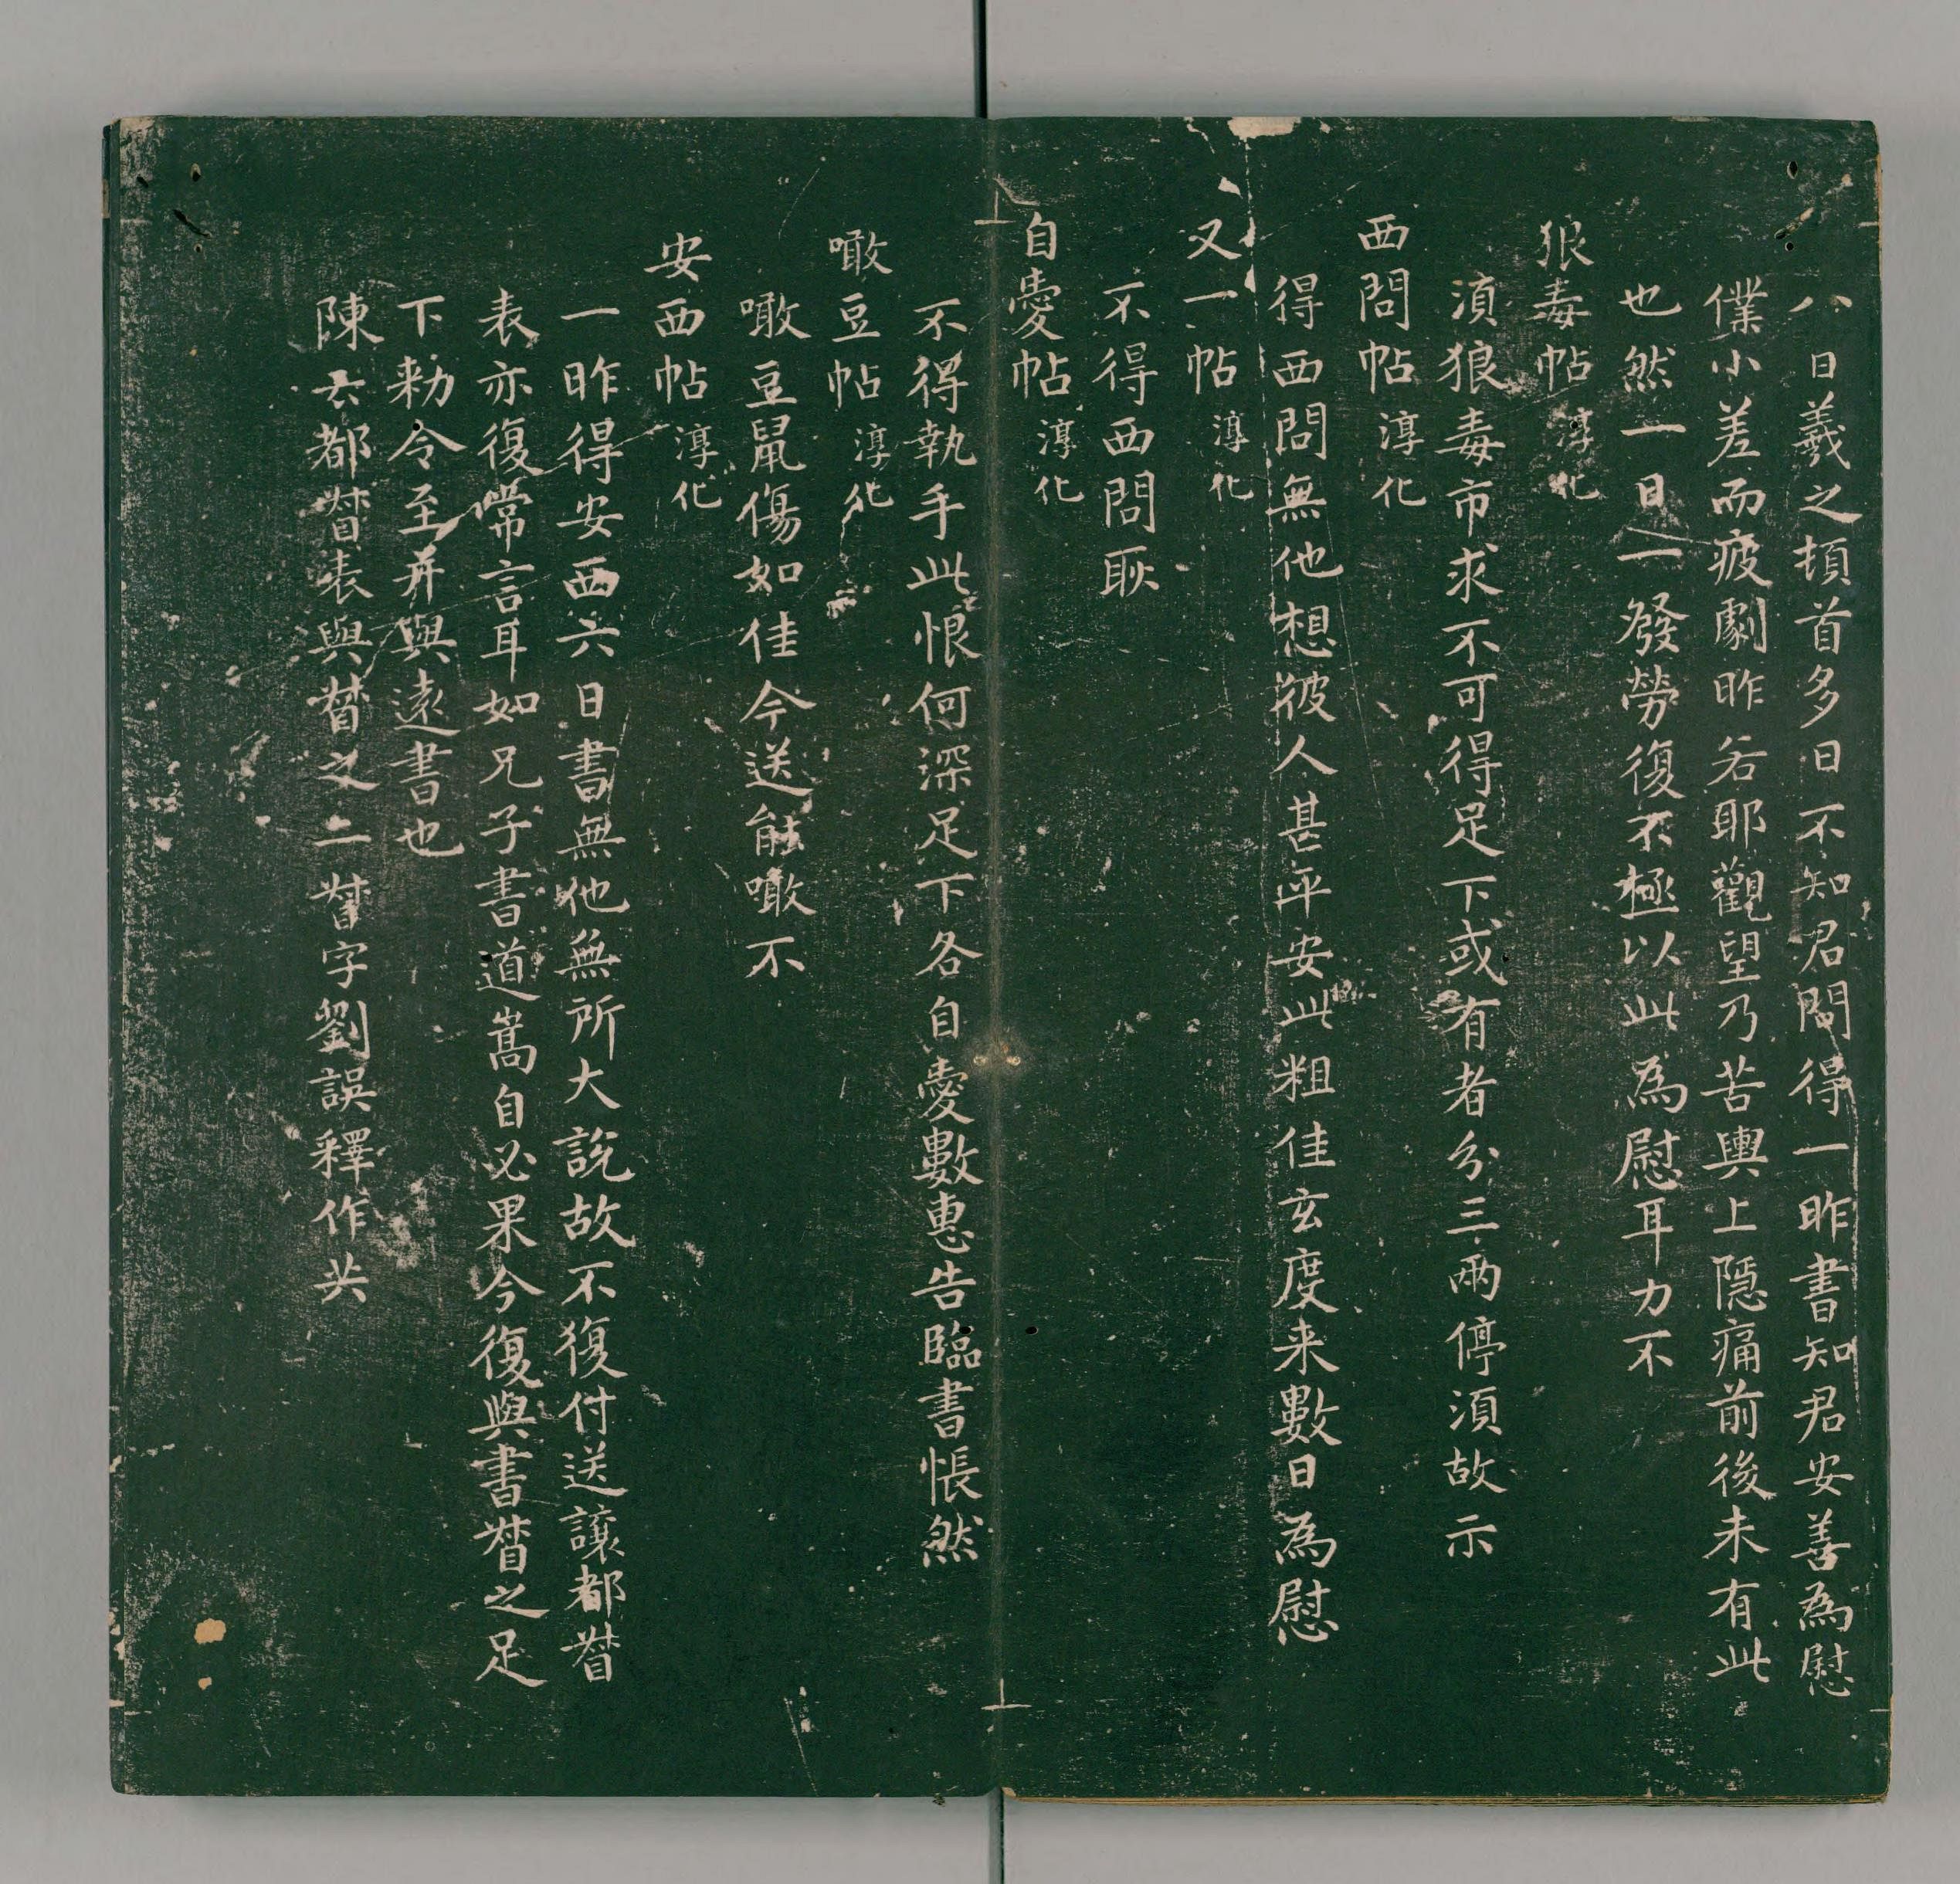 八日羲之頓首多日不知君問得一昨書知君安善為慰
僕小差而疲劇昨若耶觀望乃苦輿上隱痛前後未有此
也然一日一發勞復不極以此為慰耳力不
狼毒帖 淳化
湏狼毒市求不可得足下或有者分三兩停湏故示
西問帖 淳化
得西問無他想彼人甚平安此粗佳玄度来數日為慰
又一帖 淳化
不得西問耿
自愛帖 淳化
不得執手此恨何深足下各自愛數惠告臨書悵然
噉豆帖 淳化
噉豆鼠傷如佳今送能噉不
安西帖 淳化
一昨得安西六日書無他無所大說故不復付送讓都督
表亦復常言耳如兄子書道嵩自必果今復與書督之足
下勑令至并與遠書也
陳云都督表與督之二督字劉誤釋作共